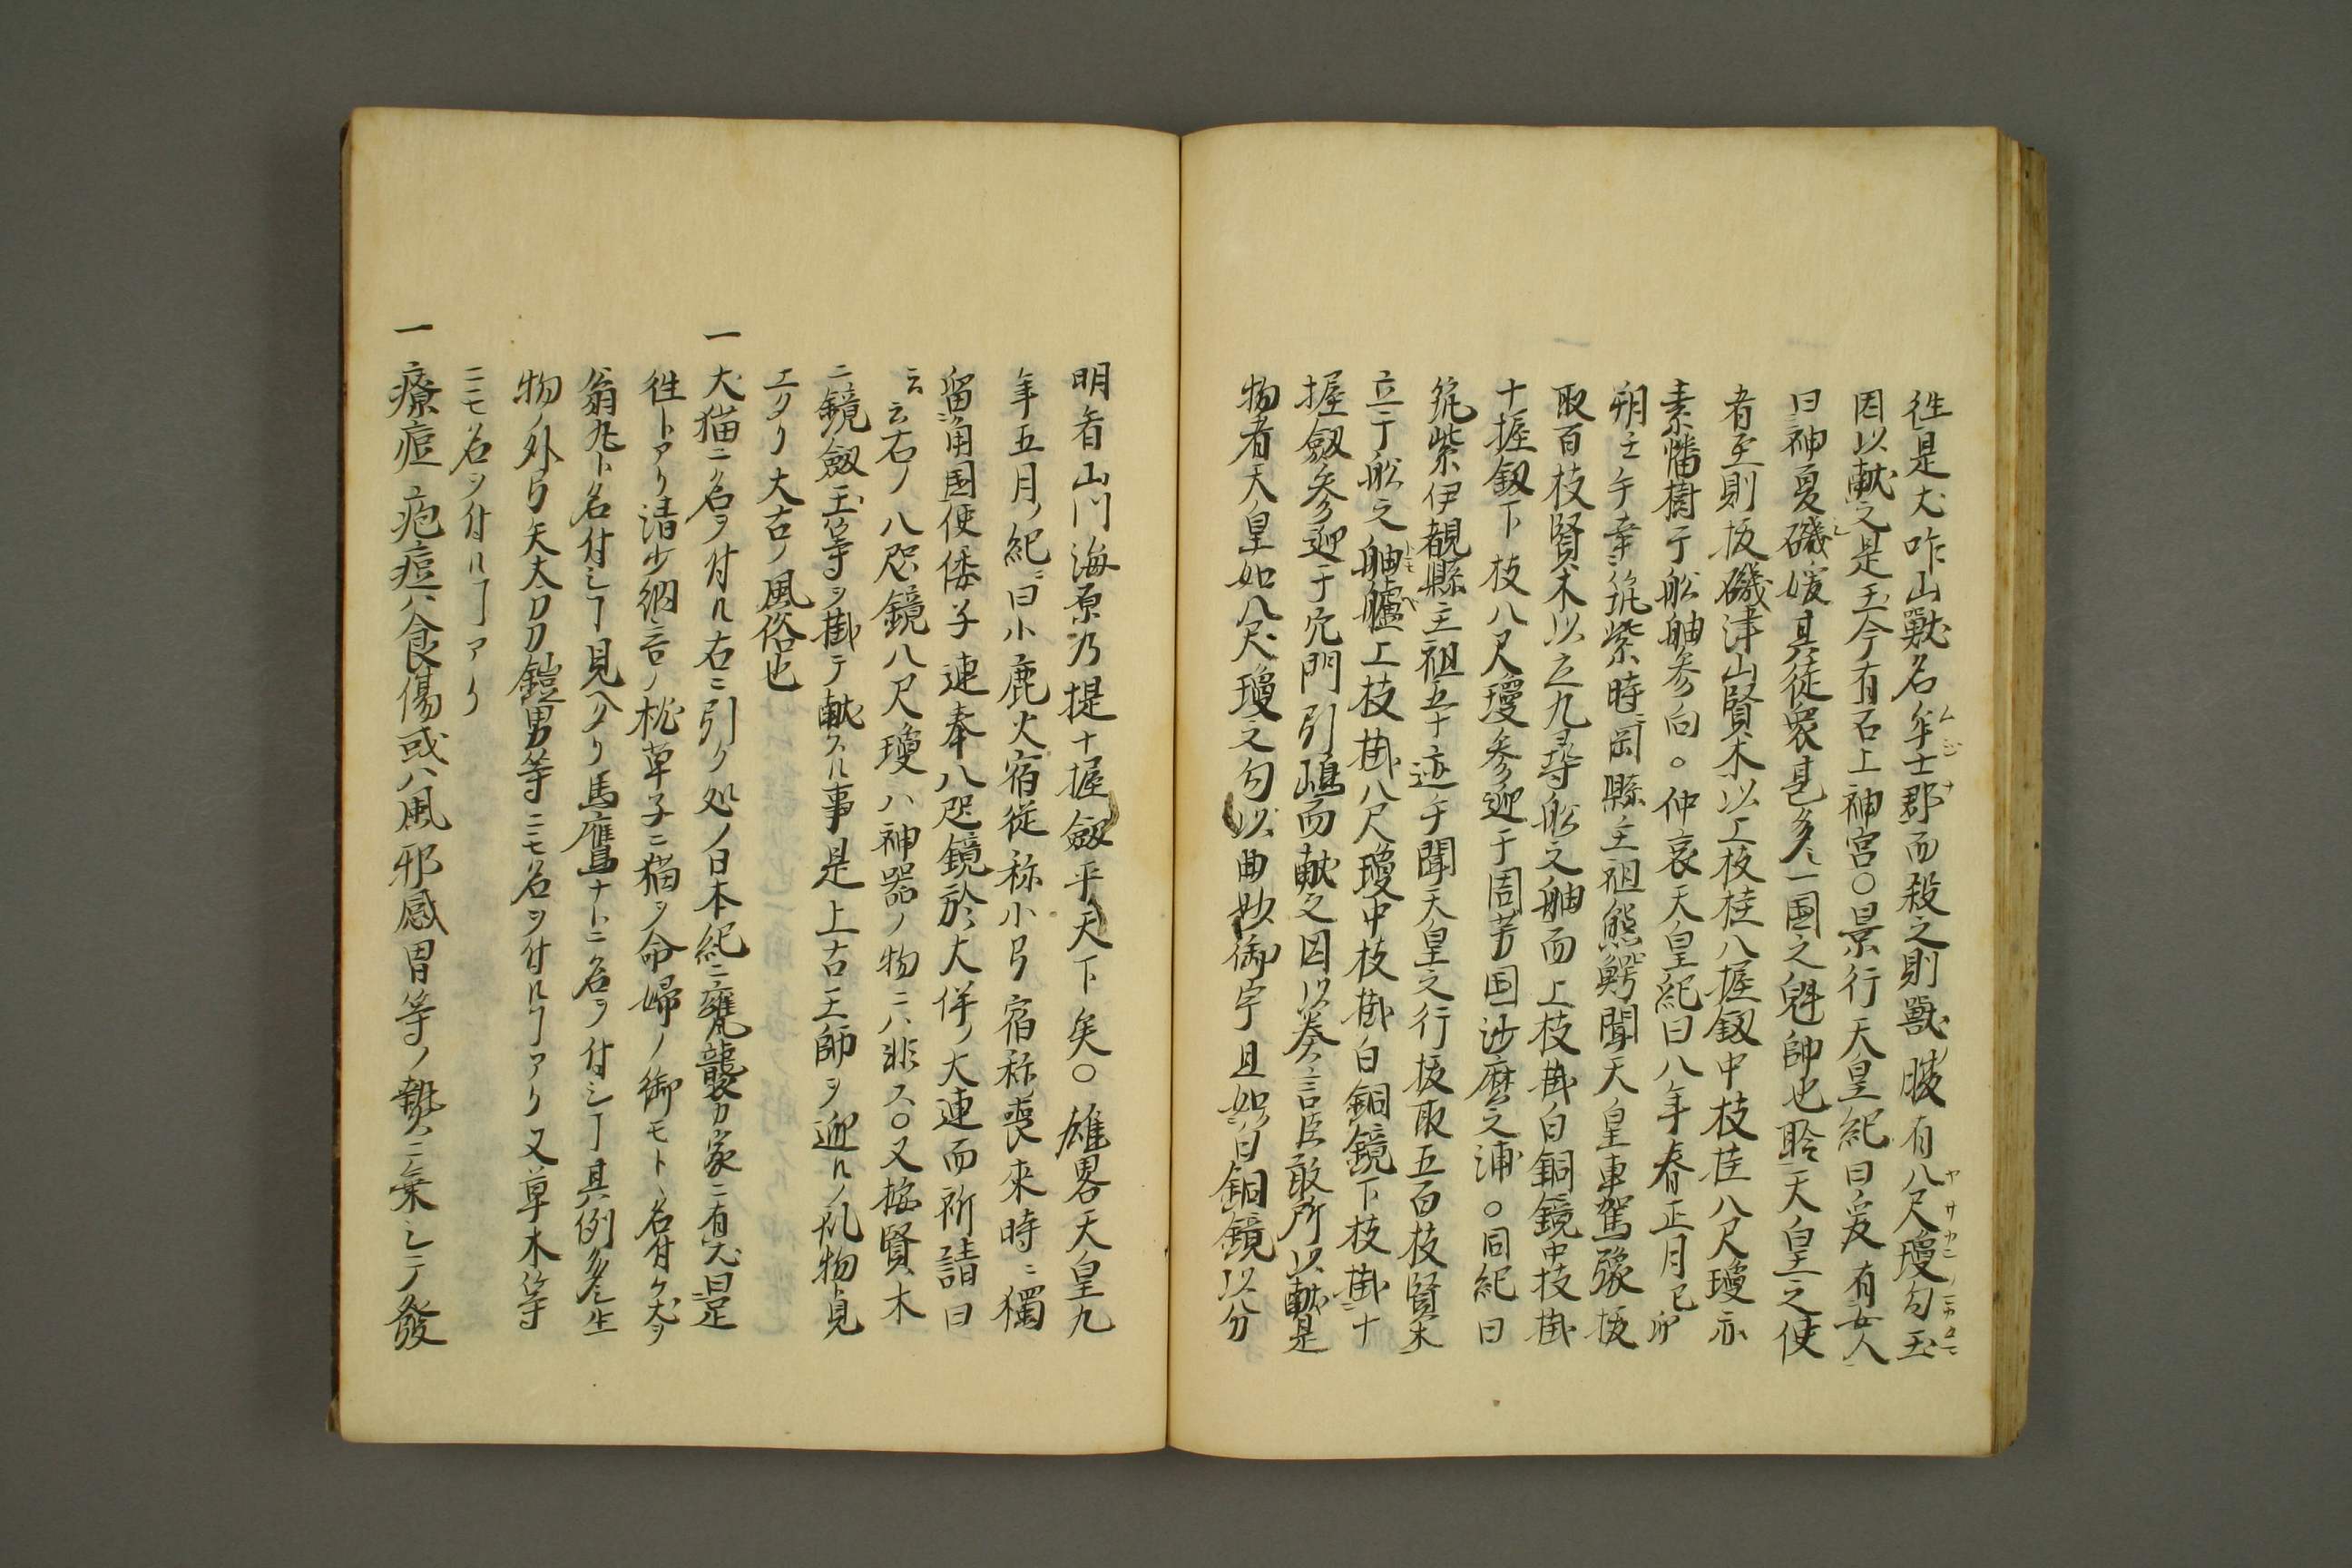 徃是犬咋山獸名牟士那而殺之則獸腹有八尺瓊勾玉
因以献之是玉今有石上神宮○景行天皇紀曰爰有女人
曰神夏磯媛其徒衆甚多一国之魁帥也聆天皇之使
者至則抜磯津山賢木以上枝挂八握釼中枝挂八尺瓊亦
素幡樹于舩舳参向。仲哀天皇紀曰八年春正月己卯
朔壬午幸筑紫時岡縣主祖熊鰐聞天皇車駕豫抜
取百枝賢木以立九尋舩之舳而上枝掛白銅鏡中枝掛
十握釼下枝八尺瓊参迎于周芳国沙麼之浦。同紀曰
筑紫伊覩縣主祖五十迹手聞天皇之行抜取五百枝賢木
立于舩之舳艫上枝掛八尺瓊中枝掛白銅鏡下枝掛十
握釼参迎于穴門引嶋而献之因以奏言臣敢所以献是
物者天皇如八尺瓊之勾以曲妙御宇且如白銅鏡以分
明看山川海原乃提十握劔平天下矣○雄畧天皇九
年五月ノ紀ニ曰小鹿火宿祢従小弓宿祢喪来時ニ獨
留角国使倭子連奉八咫鏡於大伴ノ大連而所請曰
云云右ノ八咫鏡八尺瓊ハ神器ノ物ニハ非ス○又榊賢木
ニ鏡劔玉等ヲ掛テ献スル事是上古王師ヲ迎ルノ礼物ト見
エタリ大古ノ風俗也
一 犬猫ニ名ヲ付ル右ニ引ク処ノ日本紀ニ甕襲カ家ニ有犬曰足
徃トアリ清少納言ノ枕草子ニ猫ヲ命婦ノ御モトヽ名付ケ犬ヲ
翁丸ト名付シヿ見ヘタリ馬鷹ナトニ名ヲ付シヿ其例多シ生
物ノ外弓矢太刀刀鎧冑等ニモ名ヲ付ルヿアリ又草木等
ニモ名ヲ付ルヿアリ
一 療痘 疱瘡ハ食傷或ハ風邪感冒等ノ熱ニ乗シテ發